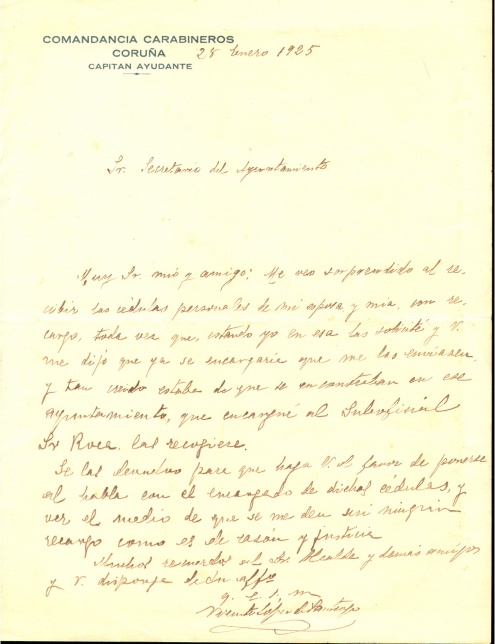 COMANDANCIA CARABINEROS
CORUÑA
CAPITAN AYUDANTE
25 Enero 1925
Sr. Secretario del Ayuntamiento
Muy Sr. mio y amigo: Me veo sorprendido al re-
cibir las cédulas personales de mi esposa y mia, con re-
cargo, toda vez que, estando yo en esa las solicité y V.
me dijo que ya se encargaria que me las enviasen,
y tan creido estaba de que se encontraban en ese
Ayuntamiento, que encargué al Suboficial
Sr Roca, las recogiese.
Se las devuelvo para que haga V. el favor de ponerse
al habla con el encargado de dichas cédulas, y
ver el medio de que se me den sin ningún
recargo como es de razón y justicia
Muchos recuerdos al Sr. Alcalde y demás amigos
y V. disponga de su affº
q. e. s. m
Vicente López de